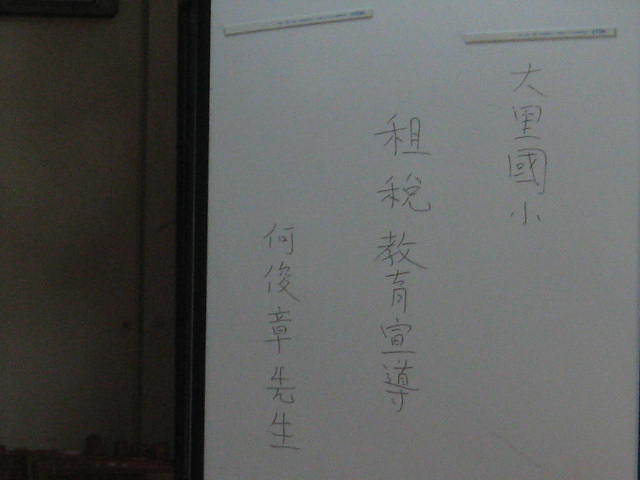 大里國小
租稅教育宣導
何俊章先生